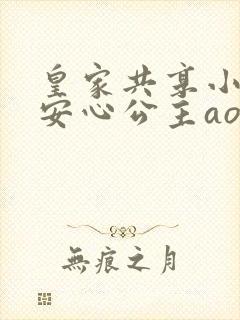 皇家共享小
安心公主ao
無痕之月